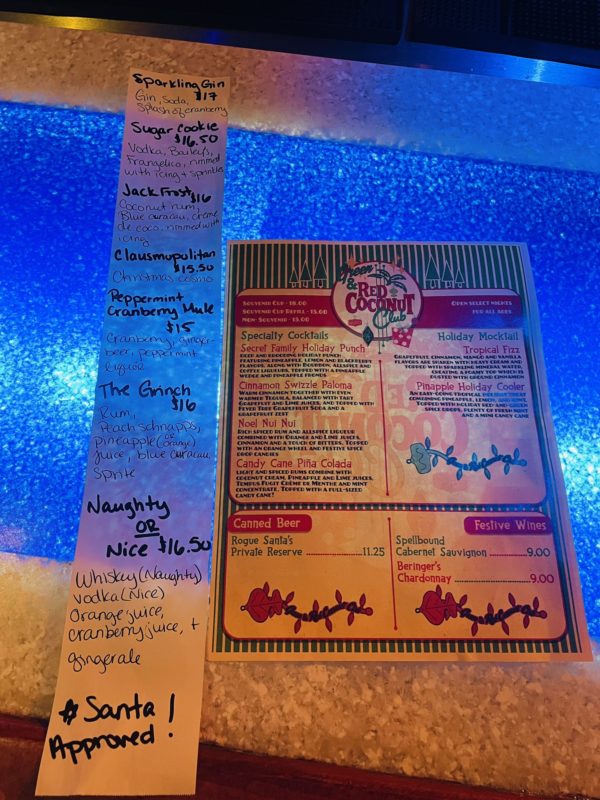 Sparkling Gin
$17
Gin, Soda,
Splash of cranberry
Sugar Cookie
$16.50
Vodka, Baileys,
Frangelico, rimmed
with icing + sprinkles
Jack Frost $16
Coconut rum,
Blue curacau, creme
de coco, rimmed with
icing
Clausmopolitan
$15.50
Christmas cosmo
Peppermint
Cranberry Mule
$15
Cranberry, ginger-
beer, peppermint
liquor
The Grinch
$16
Rum,
Peach schnapps,
pineapple (or orange)
juice, blue curacau,
Sprite
Naughty
OR
Nice $16.50
Whiskey (Naughty)
vodka (Nice)
Orange juice,
cranberry juice, +
gingerale
Santa
Approved!
Green
& Red
Coconut
Club
Souvenir Cup - 18.00
Souvenir Cup Refill - 15.00
Non-Souvenir - 15.00
Open select nights
for all ages.
Specialty Cocktails
Secret Family Holiday Punch
Deep and brooding holiday punch
featuring pineapple, lemon and blackberry
flavors, along with bourbon, allspice and
coffee liqueurs, topped with a pineapple
wedge and pineapple fronds
Cinnamon Swizzle Paloma
Warm cinnamon together with even
warmer Tequila, balanced with tart
grapefruit and lime juices, and topped with
Fever Tree Grapefruit Soda and a
grapefruit zest
Noel Nui Nui
Rich spiced rum and allspice liqueur
combined with orange and lime juices,
cinnamon and a touch of bitters, topped
with an orange wheel and festive spice
drop candies
Candy Cane Piña Colada
Light and spiced rums combine with
coconut cream, pineapple and lime juices,
Tempus Fugit Crème de Menthe and mint
concentrate, topped with a full-sized
candy cane!
Holiday Mocktail
Tropical Fizz
Grapefruit, cinnamon, mango and vanilla
flavors are shaken with heavy cream and
topped with sparkling mineral water,
creating a foamy top which is
dusted with ground cinnamon
Pinapple Holiday Cooler
An easy-going tropical holiday treat
combining pineapple, lemon, and mint,
topped with holiday red and green
spice drops, plenty of fresh mint
and a mini candy cane
Canned Beer
Rogue Santa's
Private Reserve 11.25
Festive Wines
Spellbound
Cabernet Sauvignon 9.00
Beringer's
Chardonnay 9.00